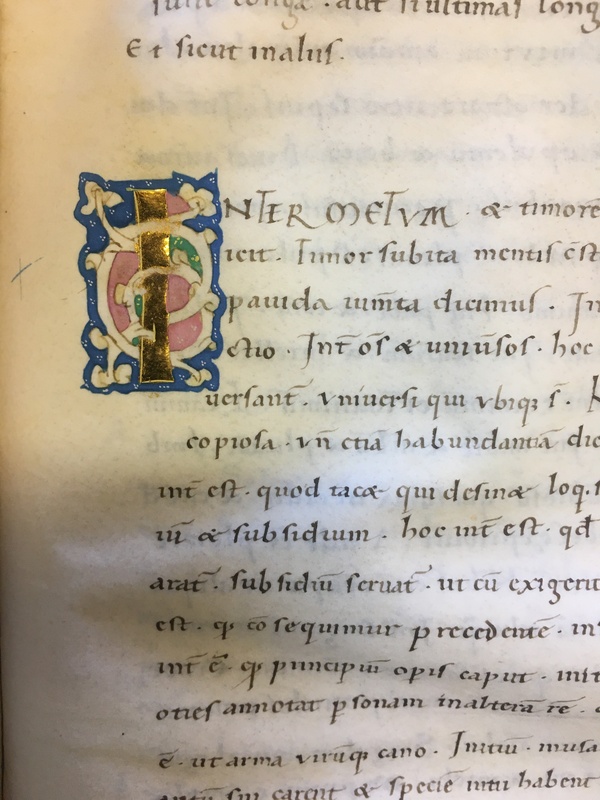 Et sicut malus.
INTER METVM · & timorē
icit. Timor subita mentis ēst
pauida iuṁta dicimus. In
ctio. Int̄ oſ̄ & uniūsos. hoc
uersant̄. vniuersi qui vbiqȝ s̄.
copiosa. vn̄ etiā habundantiā dic
int̄ est. quod tacæ qui desinæ loq.
iū & subsidium. hoc int̄ est. qđ
arat̄. subsidiū seruat̄. ut cū exigerit
est. qꝫ cōsequimur precedentē. in
int̄ ē. qꝫ principiū opis caput. init
oties annotat psonam inalterā rē.
ē. ut arma virūqꝫ cano. Initiū. musa
carent & speciē intu habent